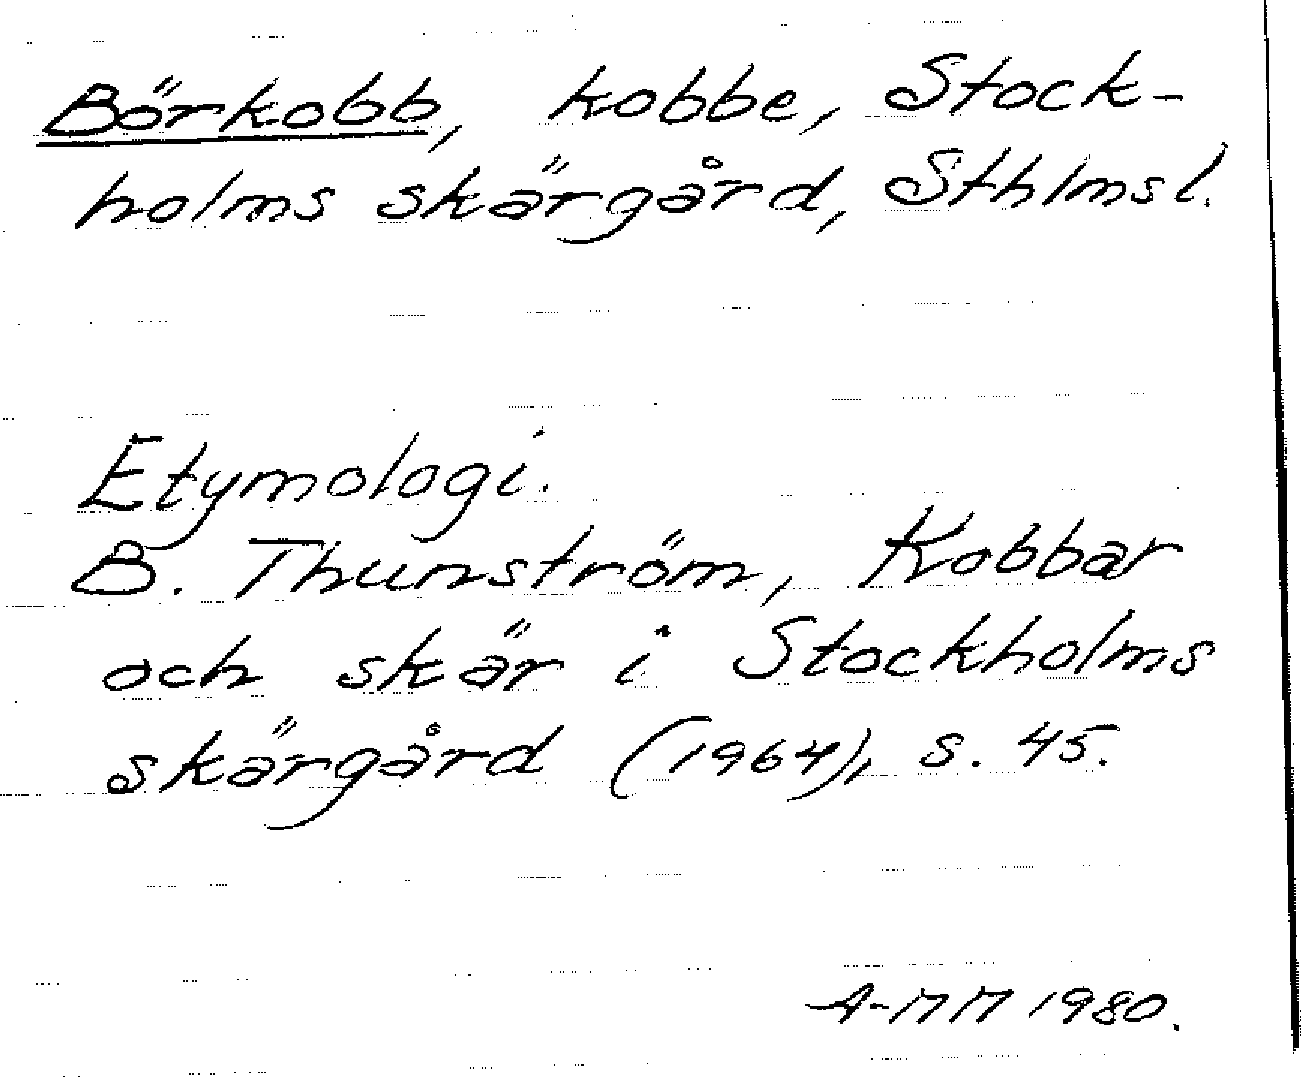 Börkobb, kobbe, Stock-
holms skärgård, Sthlmsl.
Etymologi.
B. Thunström, Kobbar
och skär i Stockholms
skärgård (1964), s. 45.
A-MM 1980.